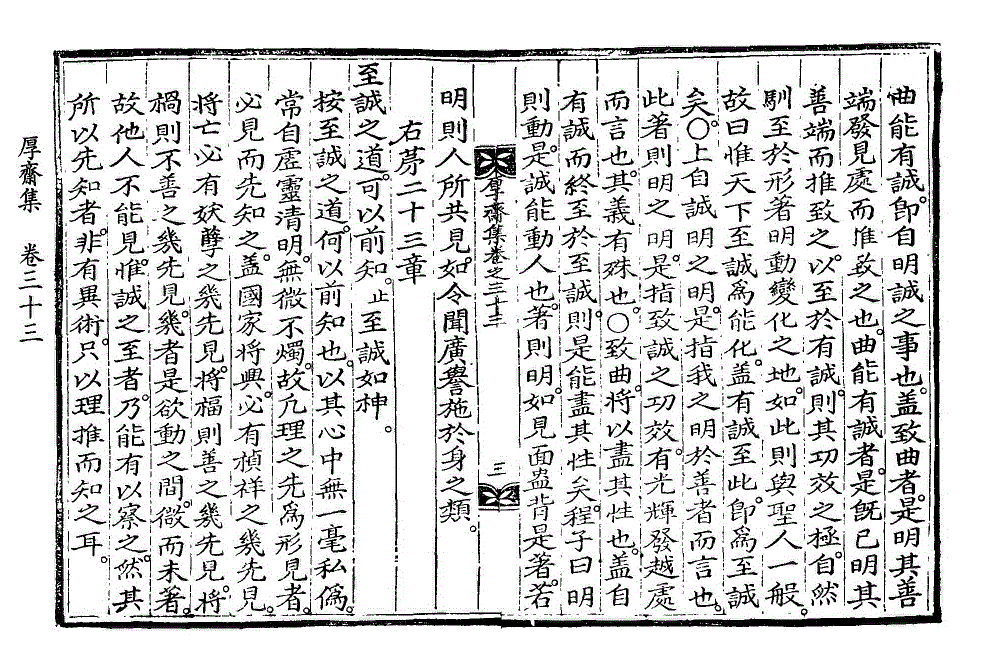 曲能有誠。卽自明誠之事也。盖致曲者。是明其善
端發見處而惟致之也。曲能有誠者。是旣已明其
善端而推致之。以至於有誠。則其功效之極。自然
馴至於形著明動變化之地。如此則與聖人一般。
故曰惟天下至誠爲能化。盖有誠至此。卽爲至誠
矣。○上自誠明之明。是指我之明於善者而言也。
此著則明之明。是指致誠之功效。有光輝發越處
而言也。其義有殊也。○致曲。將以盡其性也。盖自
有誠而終至於至誠。則是能盡其性矣。程子曰明
則動。是誠能動人也。著則明。如見面盎背是著。若
厚齋集卷之三十三
三
明則人所共見。如令聞廣譽施於身之類。
右苐二十三章
至誠之道。可以前知。止至誠如神。
按至誠之道。何以前知也。以其心中無一毫私僞。
常自虛靈淸明。無微不燭。故凢理之先爲形見者。
必見而先知之。盖國家將興。必有禎祥之幾先見。
將亡必有妖孽之幾先見。將福則善之幾先見。將
禍則不善之幾先見。幾者是欲動之間。微而未著。
故他人不能見。惟誠之至者。乃能有以察之。然其
所以先知者。非有異術。只以理推而知之耳。
厚齋集 卷三十三